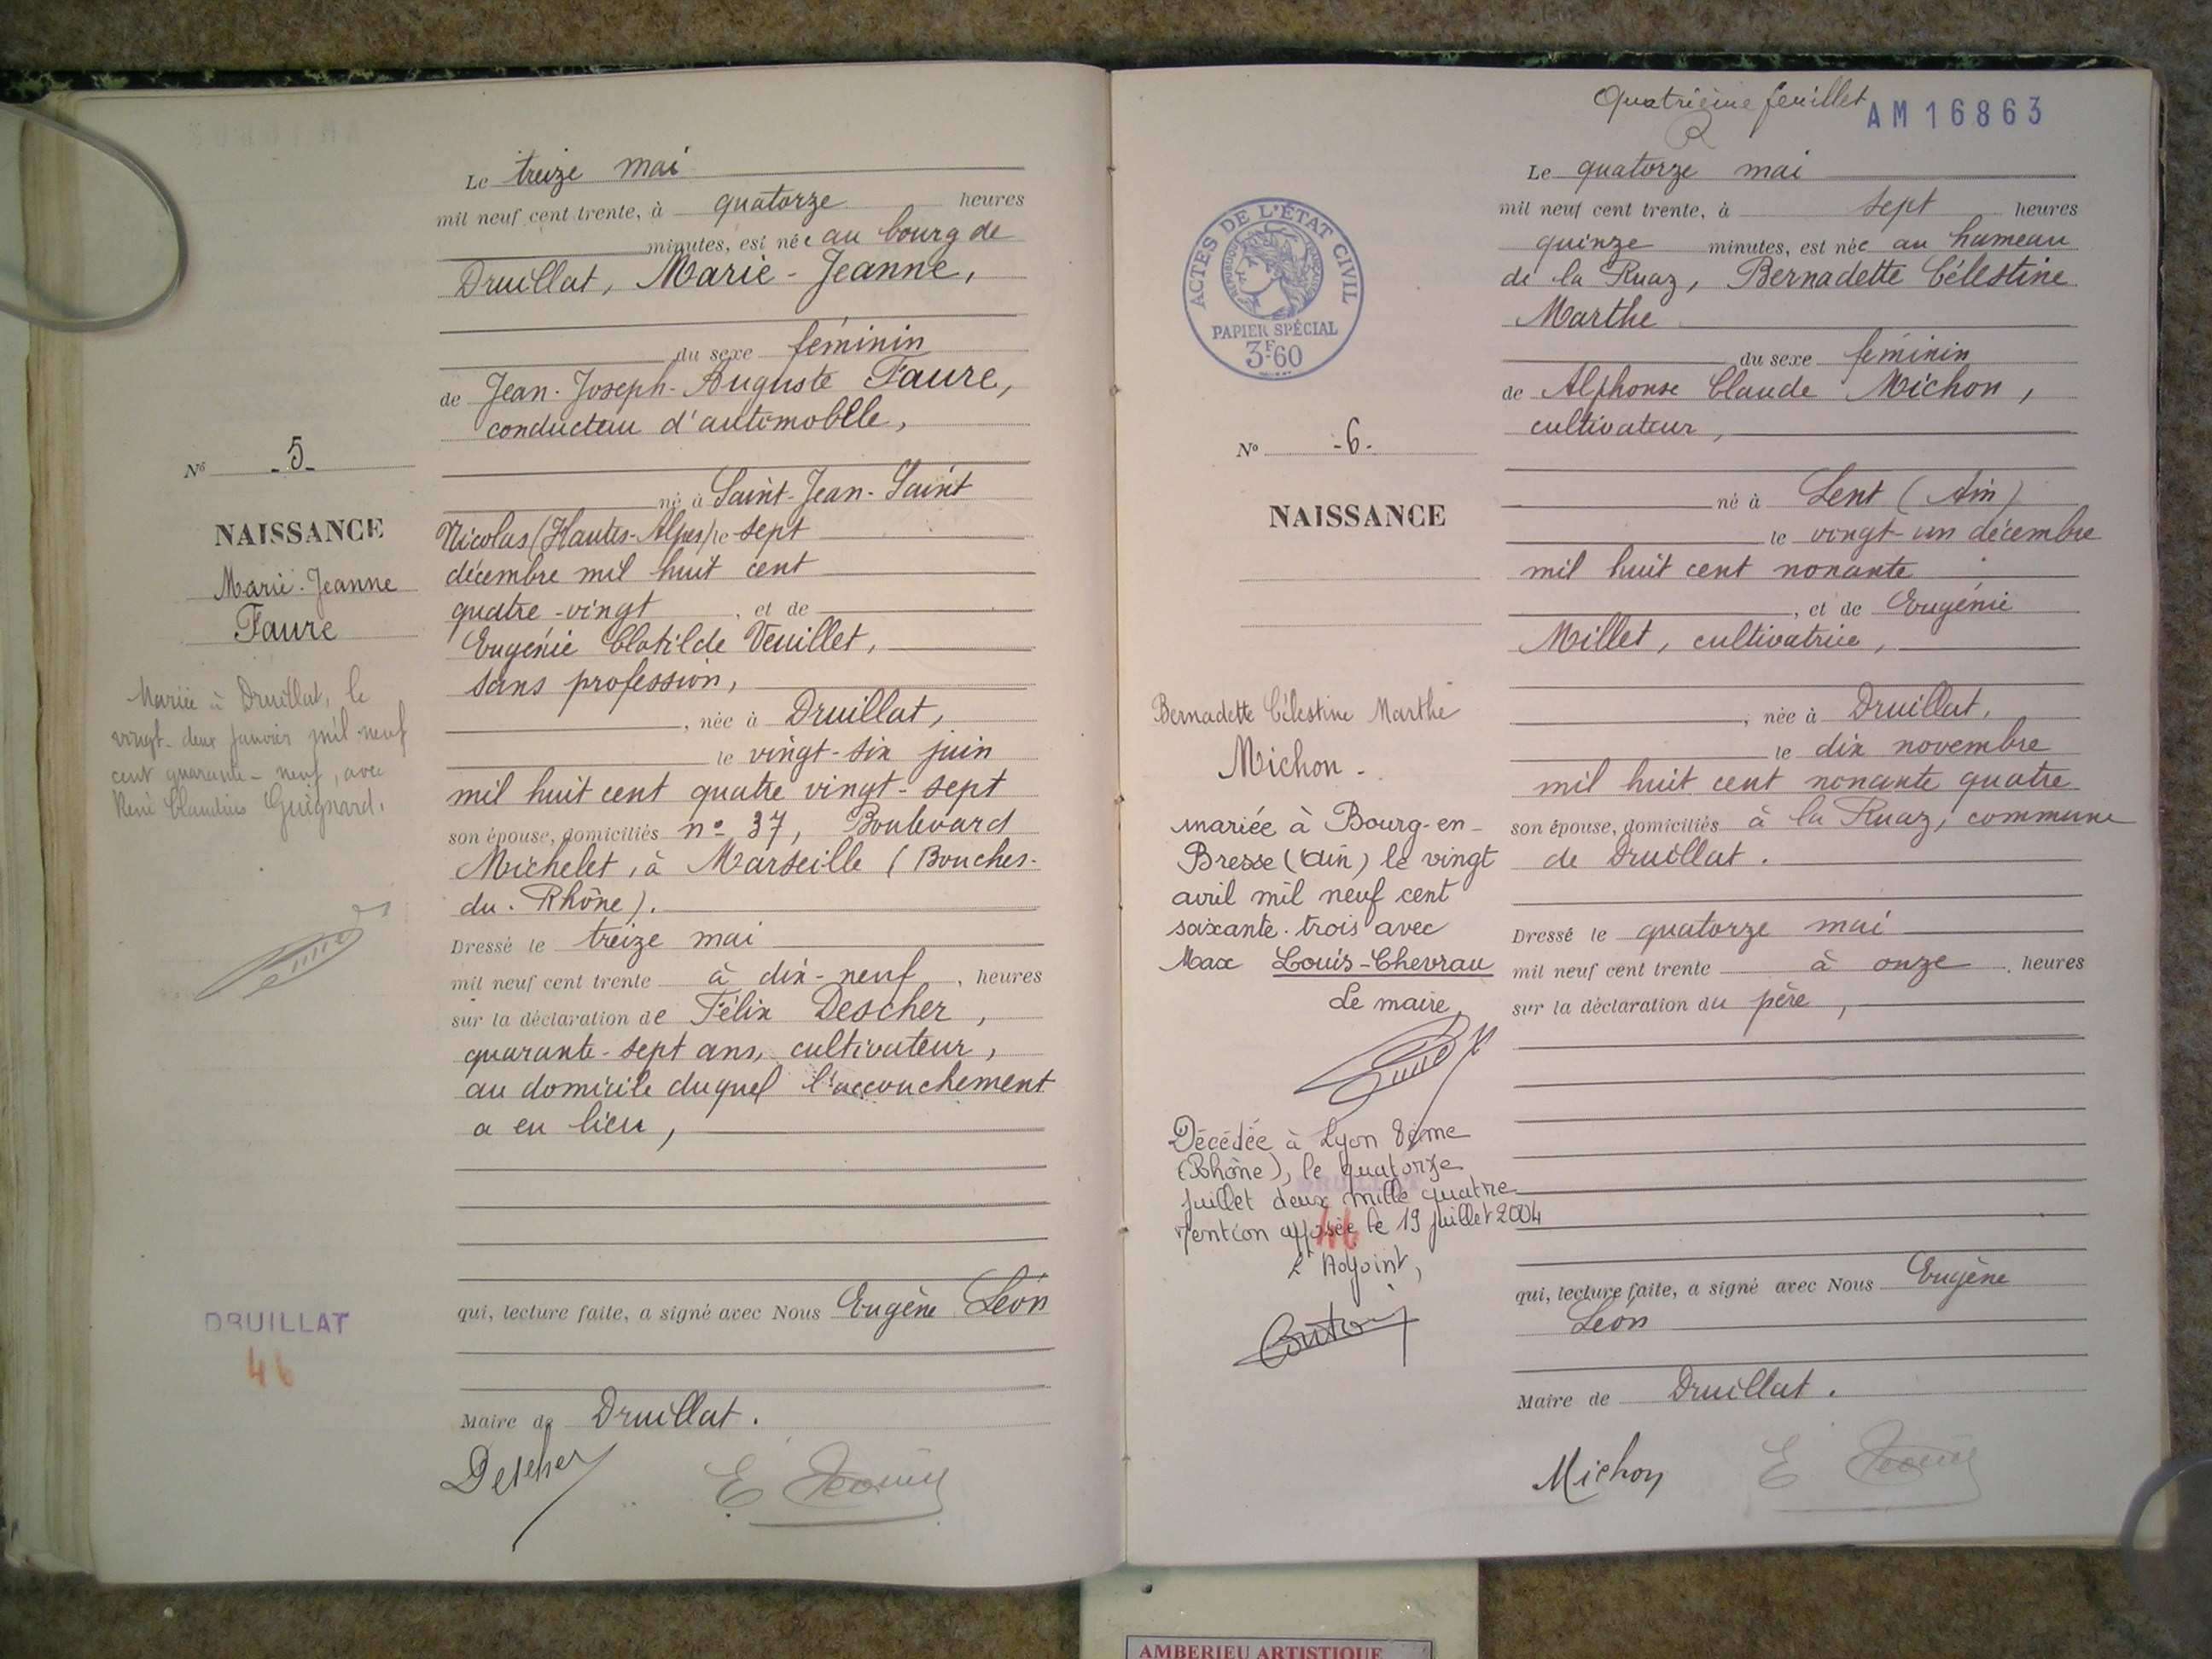 Le treize mai
mil neuf cent trente, à quatorze heures
minutes, est née au bourg de
Druillat, Marie-Jeanne,
du sexe féminin
de Jean-Joseph-Auguste Faure,
conducteur d'automobile,
né à Saint-Jean-Saint
Nicolas (Hautes-Alpes) le sept
décembre mil huit cent
quatre-vingt, et de
Eugénie Clotilde Veuillet,
sans profession,
, née à Druillat,
le vingt-six juin
mil huit cent quatre vingt-sept
son épouse, domiciliés n° 37, Boulevard
Michelet, à Marseille (Bouches-
du-Rhône).
Dressé le treize mai
mil neuf cent trente à dix-neuf, heures
sur la déclaration de Félix Descher,
quarante-sept ans, cultivateur,
au domicile duquel l'accouchement
a eu lieu,
qui, lecture faite, a signé avec Nous Eugène Léon
Maire de Druillat.
Descher
N° -5-
NAISSANCE
Marie-Jeanne
Faure
Mariée à Druillat, le
vingt-deux janvier mil neuf
cent quarante-neuf, avec
René Claudius Guignard.
DRUILLAT
46
Quatrième feuillet
AM16863
Le quatorze mai
mil neuf cent trente, à sept heures
quinze minutes, est née au hameau
de la Ruaz, Bernadette Célestine
Marthe
du sexe féminin
de Alphonse Claude Michon,
cultivateur,
né à Lent (Ain)
le vingt-un décembre
mil huit cent nonante
, et de Eugénie
Millet, cultivatrice,
, née à Druillat,
le dix novembre
mil huit cent nonante quatre
son épouse, domiciliés à la Ruaz, commune
de Druillat.
Dressé le quatorze mai
mil neuf cent trente à onze, heures
sur la déclaration du père,
qui, lecture faite, a signé avec Nous Eugène
Léon
Maire de Druillat.
Michon
ACTES DE L'ÉTAT CIVIL
RÉPUBLIQUE FRANÇAISE
PAPIER SPÉCIAL
3F60
N° -6-
NAISSANCE
Bernadette Célestine Marthe
Michon-
mariée à Bourg-en-
Bresse (Ain) le vingt
avril mil neuf cent
soixante-trois avec
Max Louis-Chevrau
Le maire,
Décédée à Lyon 8ème
(Rhône), le quatorze
juillet deux mille quatre
Mention apposée le 19 juillet 2004
L'Adjoint,
DRUILLAT
46
AMBERIEU ARTISTIQUE